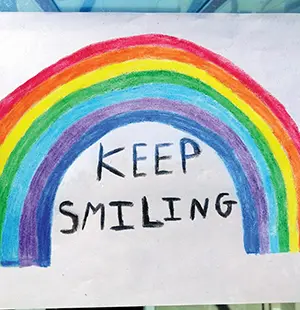 KEEP
SMILING